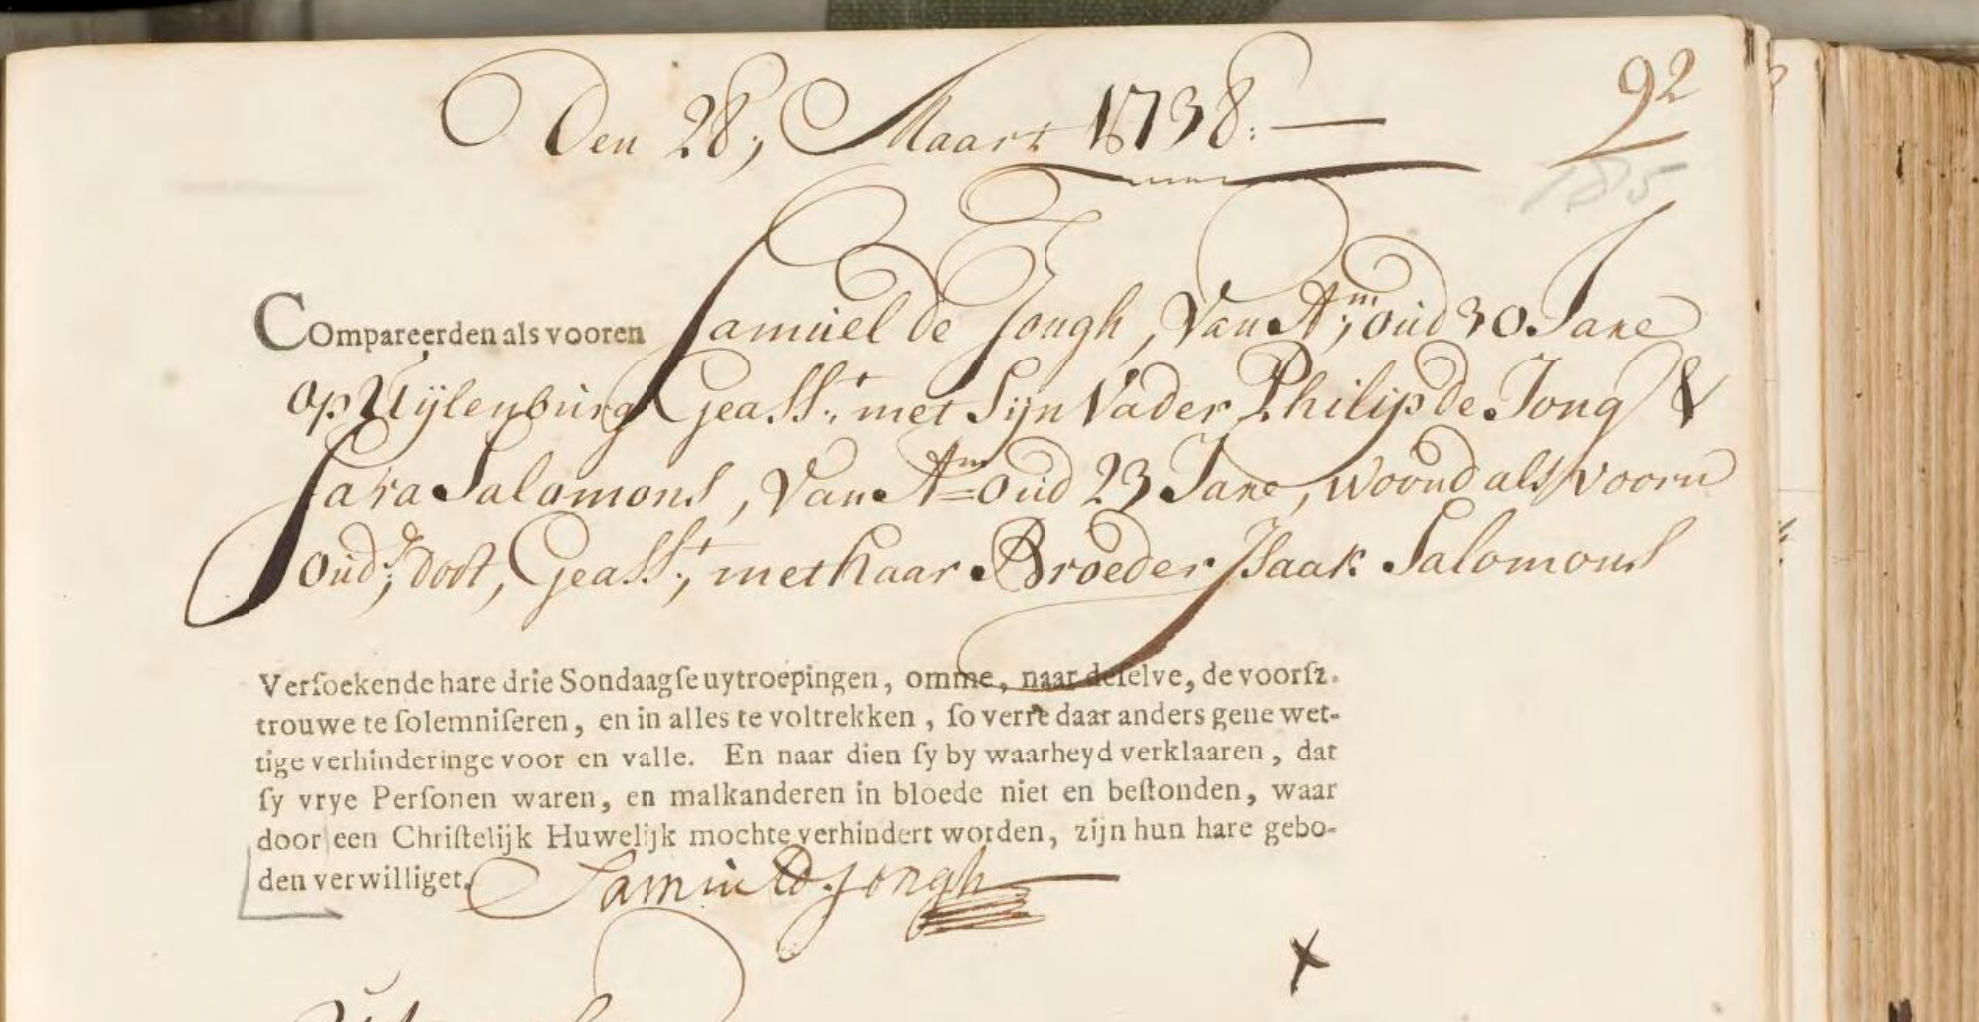 Den 28, Maart 1738.
92
185
COmpareerden als vooren Samuel de Jongh, van Am, oud 30 Jare
op Uÿlenburg Geasst. met Sijn Vader Philip de Jong &
Sara Salomons, van Am oud 23 Jare, woond als voorn
oud,s doot, Geasst, met haar Broeder Isaak Salomons
Verſoekende hare drie Sondaagſe uytroepingen, omme, naar deſelve, de voorſz.
trouwe te ſolemniſeren, en in alles te voltrekken, ſo verre daar anders gene wet-
tige verhinderinge voor en valle. En naar dien ſy by waarheyd verklaaren, dat
ſy vrye Perſonen waren, en malkanderen in bloede niet en beſtonden, waar
door een Chriſtelijk Huwelijk mochte verhindert worden, zijn hun hare gebo-
den verwilliget. Samuel d Jongh
X